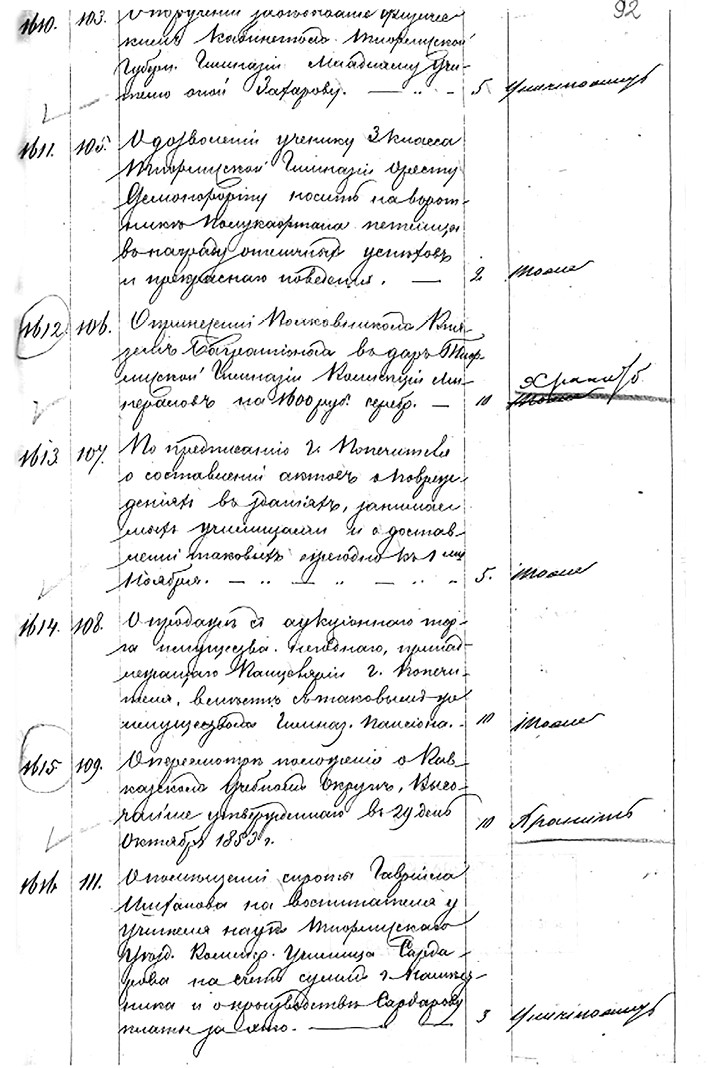 92
1610. 103. О поручении заведование физичес-
кимъ Кабинетомъ Тифлисской
Губерн. Гимназіи Младшему Учи-
телю оной Захарову. — „ - 5 Уничтожить
1611. 105. О дозволеніи ученику 3 класса
Тифлисской Гимназіи Оресту
носить на ворот-
никѣ полукафтана петлицы
въ награду отличныхъ успѣховъ
и прекраснаго поведенія. — 2 тоже
1612. 106. О принесеніи Полковникомъ Кня-
земъ Багратіономъ въ даръ Тиф-
лисской Гимназіи Коллекціи Ми-
нераловъ на 1600 руб. серебр. — 10 Хранить
1613. 107. По предписанію г. Попечителя
о составленіи актовъ о повреж-
деніяхъ въ зданіяхъ, занимае-
мыхъ училищами и о достав-
леніи таковыхъ ежегодно къ 1му
Ноября. — „ — „ — „ - 5. тоже
1614. 108. О продажѣ съ аукціоннаго тор-
га имущества негоднаго, принад-
лежащаго Канцеляріи г. Попечи-
теля, вмѣстѣ съ таковымъ же
имуществомъ Гимназ. Пансіона. - 10 тоже
1615. 109. О пересмотрѣ положенія о Кав-
казскомъ Учебномъ Округѣ, Высо-
чайше утвержденнаго въ 29 день
Октября 1853 г. 10 Хранить
1616. 111. О помѣщеніи сироты Гавріила
на воспитаніе у
Учителя наукъ Тифлисскаго
Уѣзд. Коммер. Училища Сарда-
рова на счетъ суммъ г. Намѣст-
ника и о производствѣ Сардарову
платы за это. — 3 Уничтожить